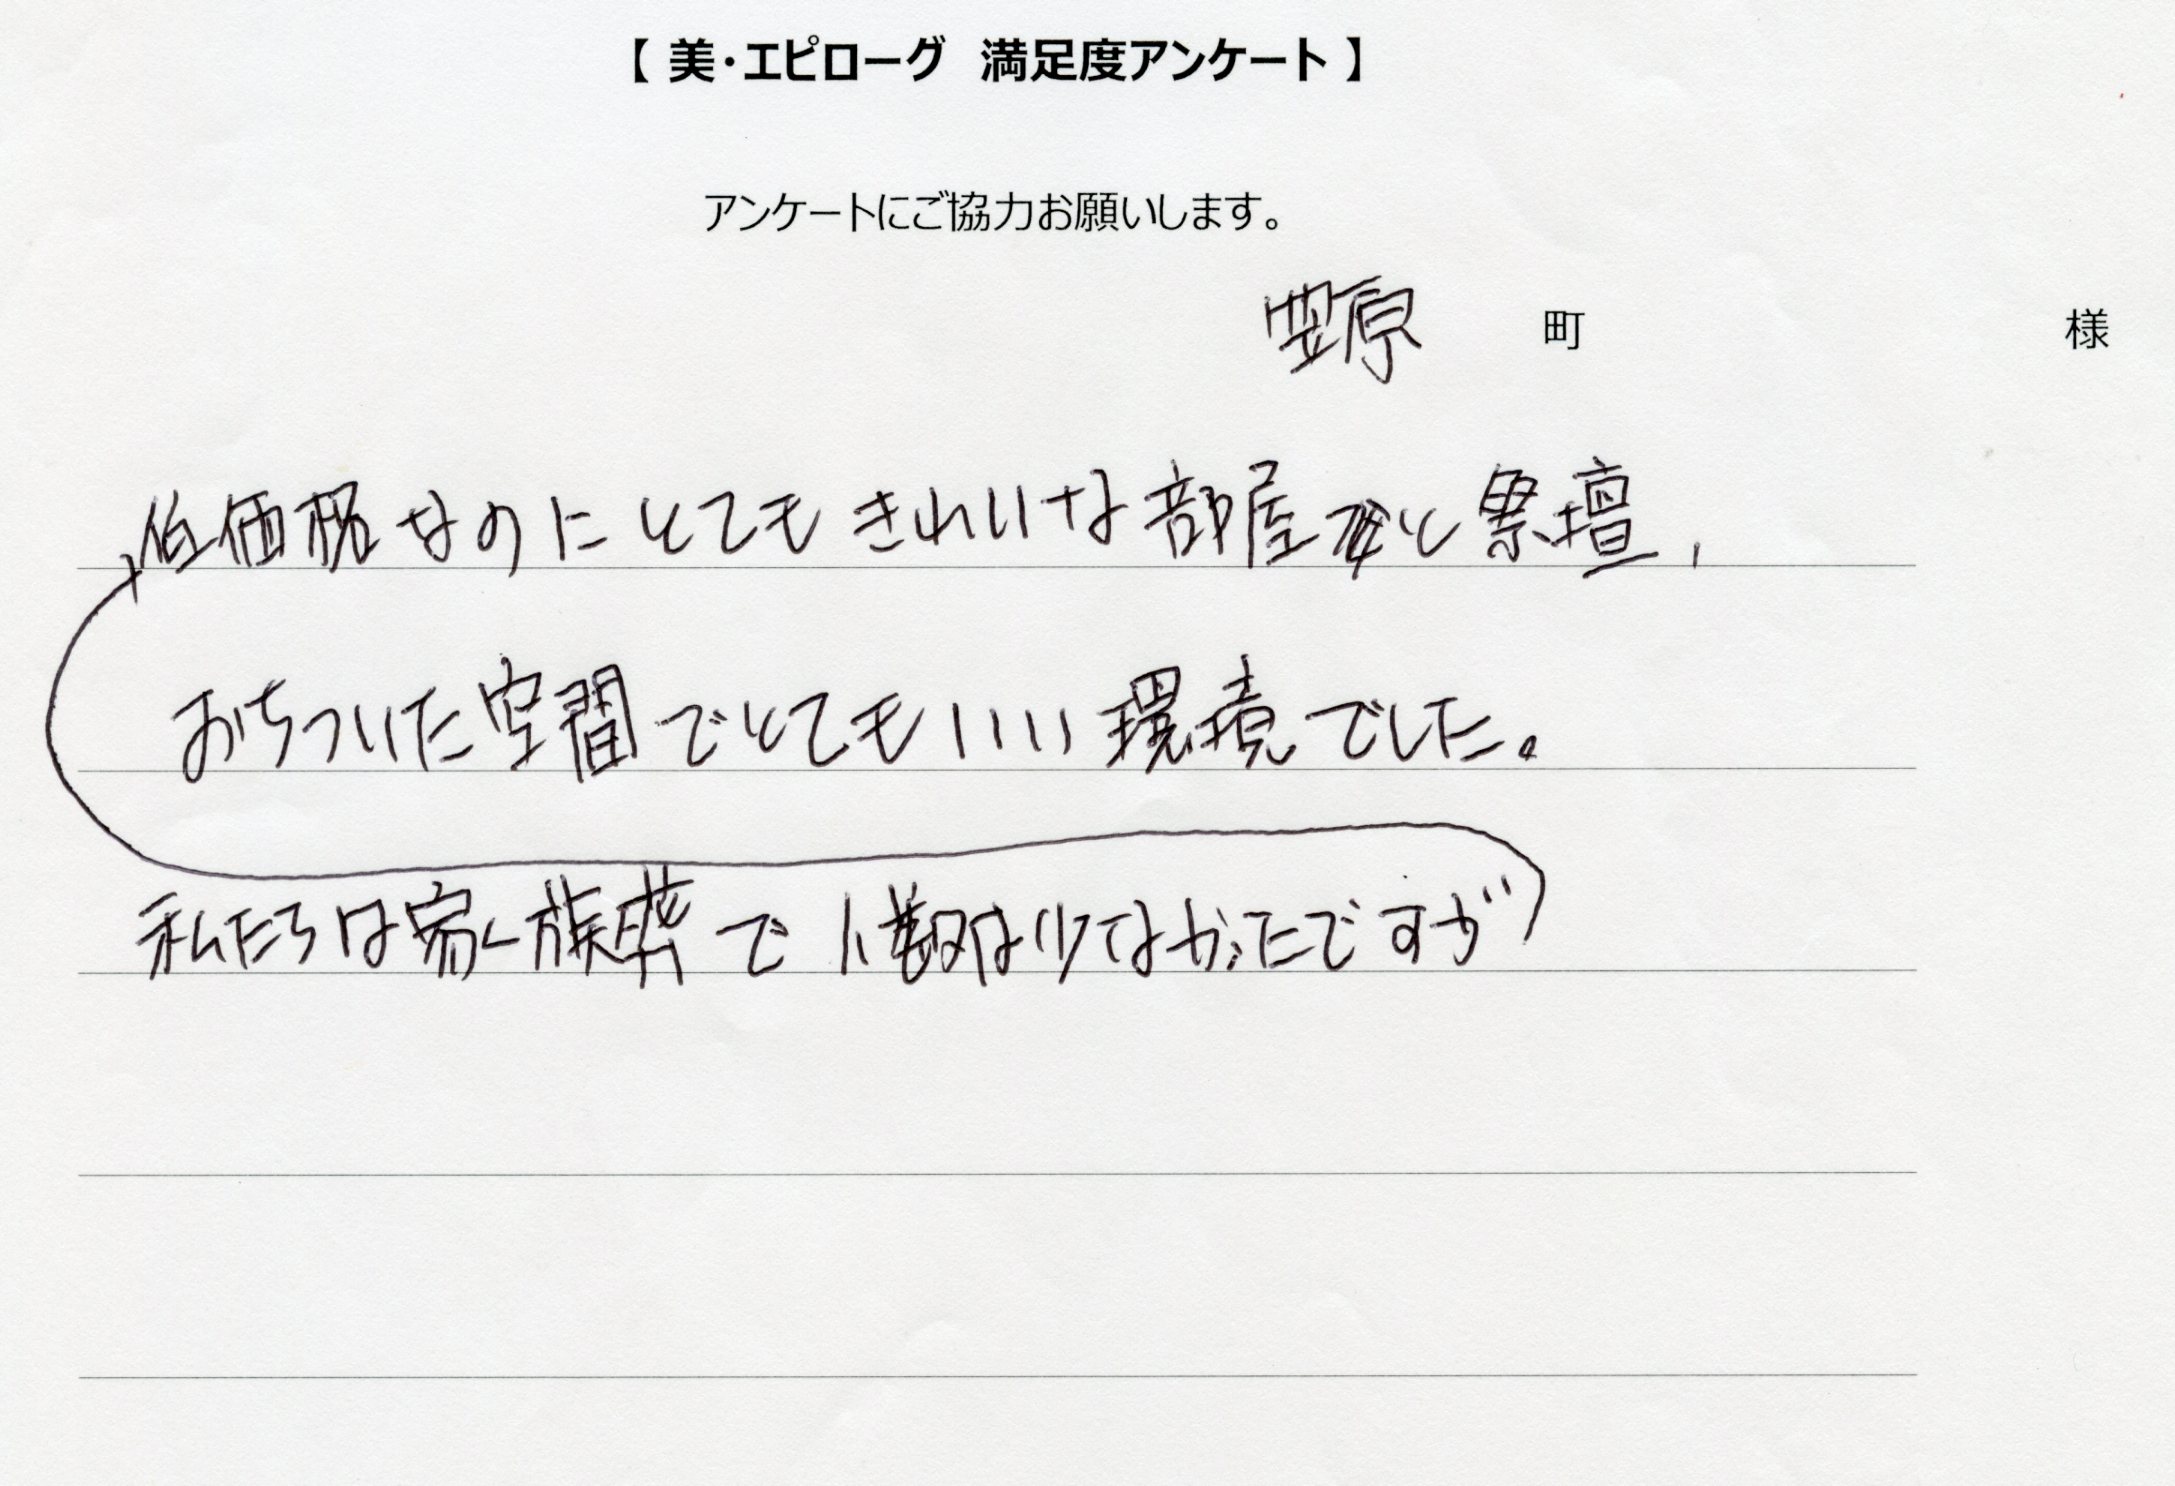 【 美・エピローグ 満足度アンケート 】
アンケートにご協力お願いします。
笠原 町 様
低価格なのにとてもきれいな部屋と祭壇、
おちついた空間でとてもいい環境でした。
私たちは家族葬で人数は少なかったですが